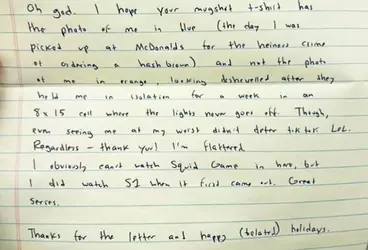 Oh god. I hope your mugshot t-shirt has
the photo of me in blue (the day I was
picked up at McDonalds for the heinous crime
of ordering a hash brown) and not the photo
of me in orange, looking dishevelled after they
held me in isolation for a week in an
8x15 cell where the lights never goes off. Though,
even seeing me at my worst didn't deter tiktok LOL.
Regardless - thank you! I'm flattered
I obviously can't watch Squid Game in here, but
I did watch S1 when it first came out. Great
series.
Thanks for the letter and happy (belated) holidays.